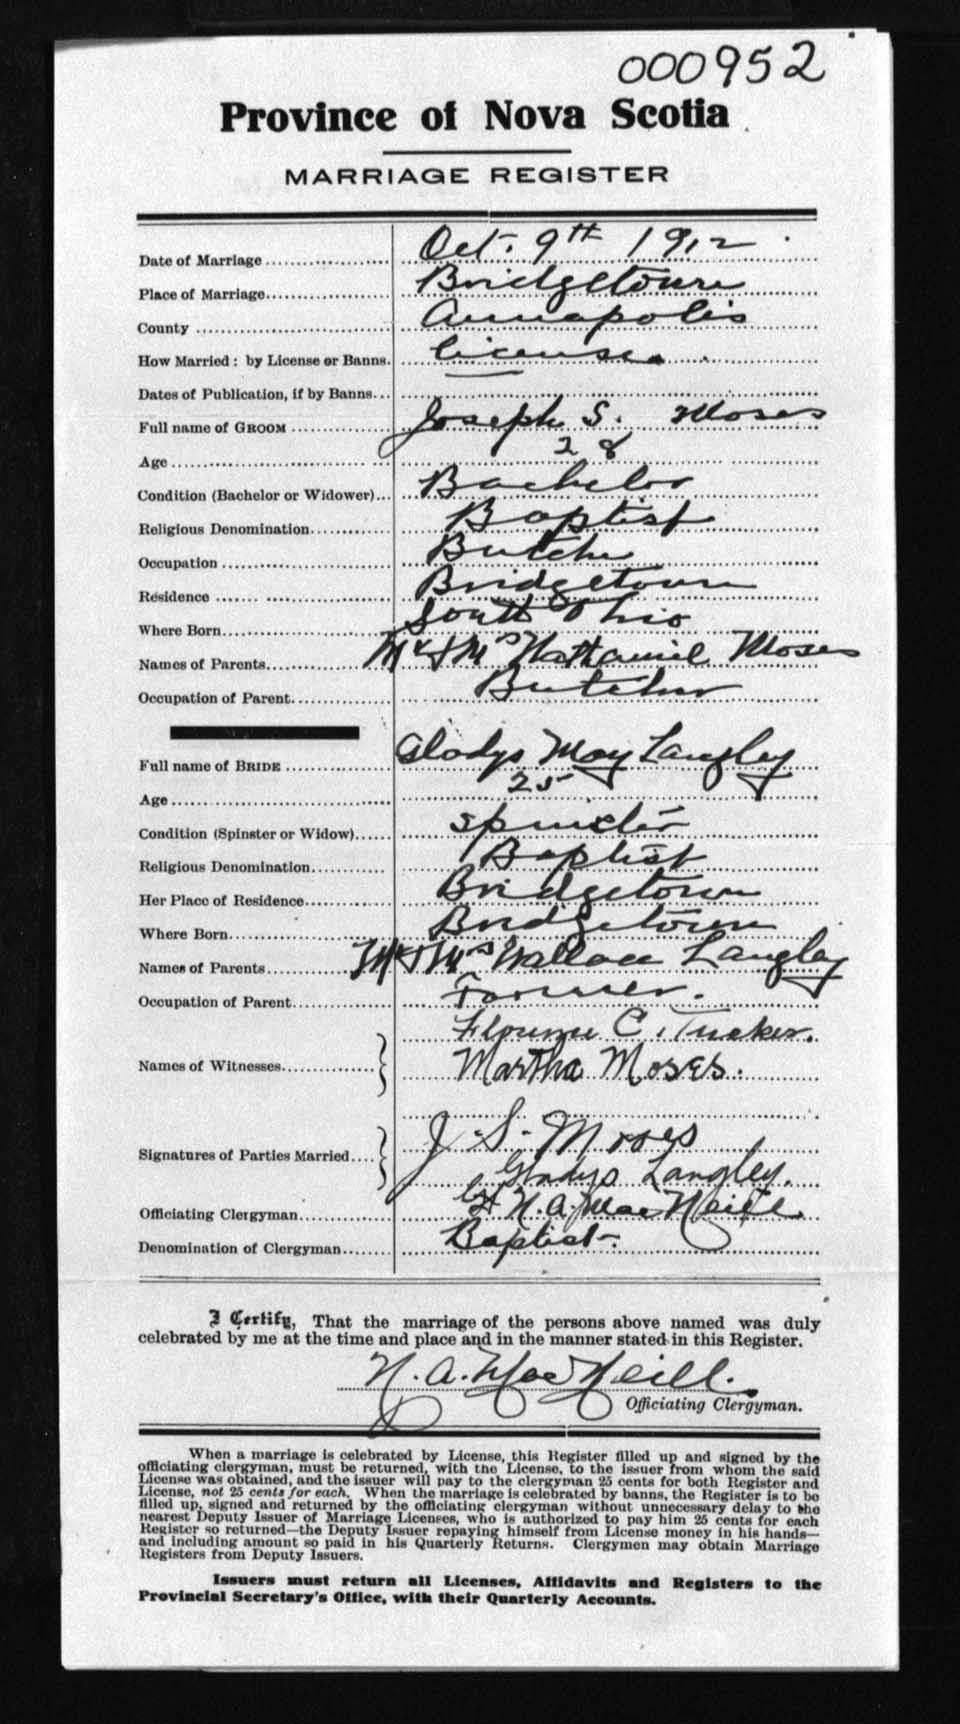 000952
Province of Nova Scotia
MARRIAGE REGISTER
Date of Marriage Oct. 9th 1912
Place of Marriage Bridgetown
County Annapolis
How Married: by License or Banns. license
Dates of Publication, if by Banns
Full name of GROOM Joseph S. Moses
Age 28
Condition (Bachelor or Widower) Bachelor
Religious Denomination Baptist
Occupation Butcher
Residence Bridgetown
Where Born South Ohio
Names of Parents Mr & Mrs Nathaniel Moses
Occupation of Parent Butcher
Full name of BRIDE Gladys May Langley
Age 25
Condition (Spinster or Widow) spinster
Religious Denomination Baptist
Her Place of Residence Bridgetown
Where Born Bridgetown
Names of Parents Mr & Mrs Wallace Langley
Occupation of Parent Farmer.
Florence C. Tucker.
Names of Witnesses Martha Moses.
Signatures of Parties Married J. S. Moses
Gladys Langley.
Officiating Clergyman N. A. MacNeill
Denomination of Clergyman Baptist.
I Certify, That the marriage of the persons above named was duly
celebrated by me at the time and place and in the manner stated in this Register.
N. A. MacNeill.
Officiating Clergyman.
When a marriage is celebrated by License, this Register filled up and signed by the
officiating clergyman, must be returned, with the License, to the issuer from whom the said
License was obtained, and the issuer will pay to the clergyman 25 cents for both Register and
License, not 25 cents for each. When the marriage is celebrated by banns, the Register is to be
filled up, signed and returned by the officiating clergyman without unnecessary delay to the
nearest Deputy Issuer of Marriage Licenses, who is authorized to pay him 25 cents for each
Register so returned—the Deputy Issuer repaying himself from License money in his hands—
and including amount so paid in his Quarterly Returns. Clergymen may obtain Marriage
Registers from Deputy Issuers.
Issuers must return all Licenses, Affidavits and Registers to the
Provincial Secretary's Office, with their Quarterly Accounts.